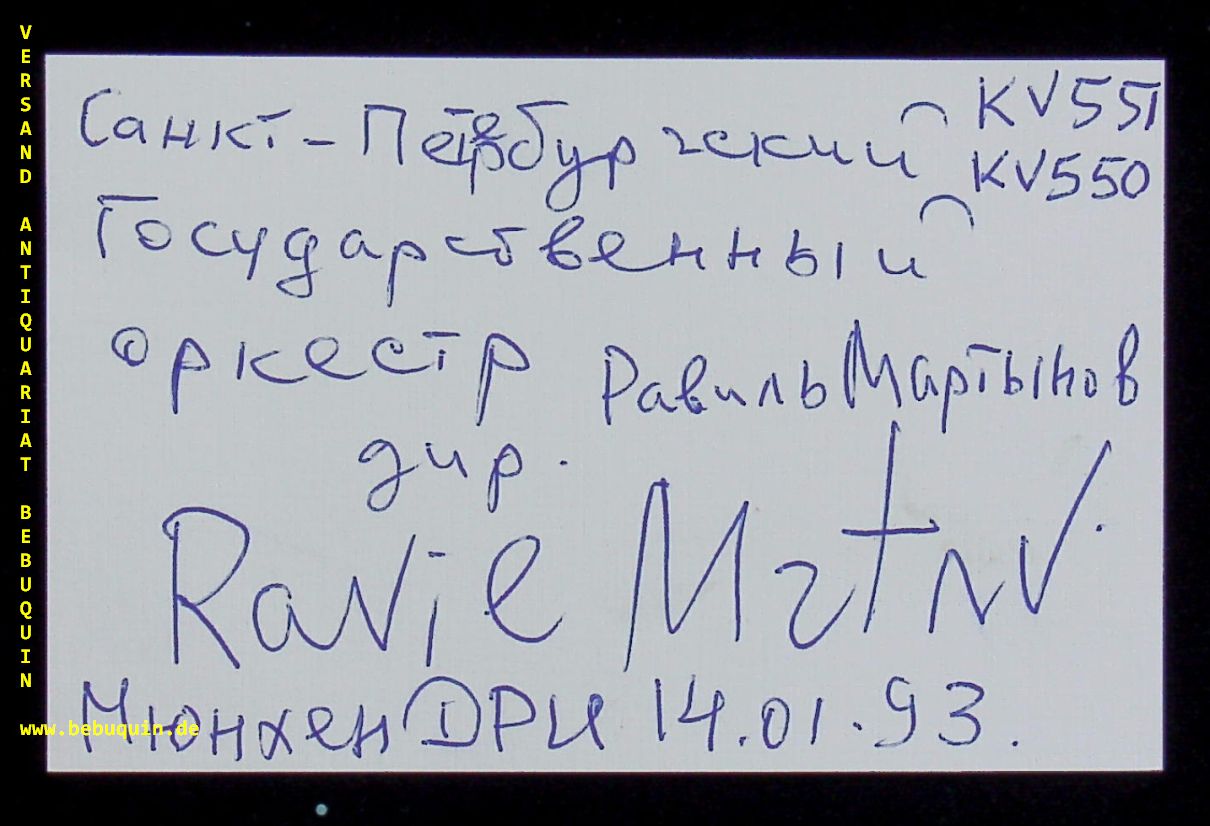 VERSAND ANTIQUARIAT BEBUQUIN
www.bebuquin.de
Санкт-Петербургский KV551
KV550
Государственный
оркестр Равиль Мартынов
дир.
Ravil Mrtnv.
Мюнхен 14.01.93.